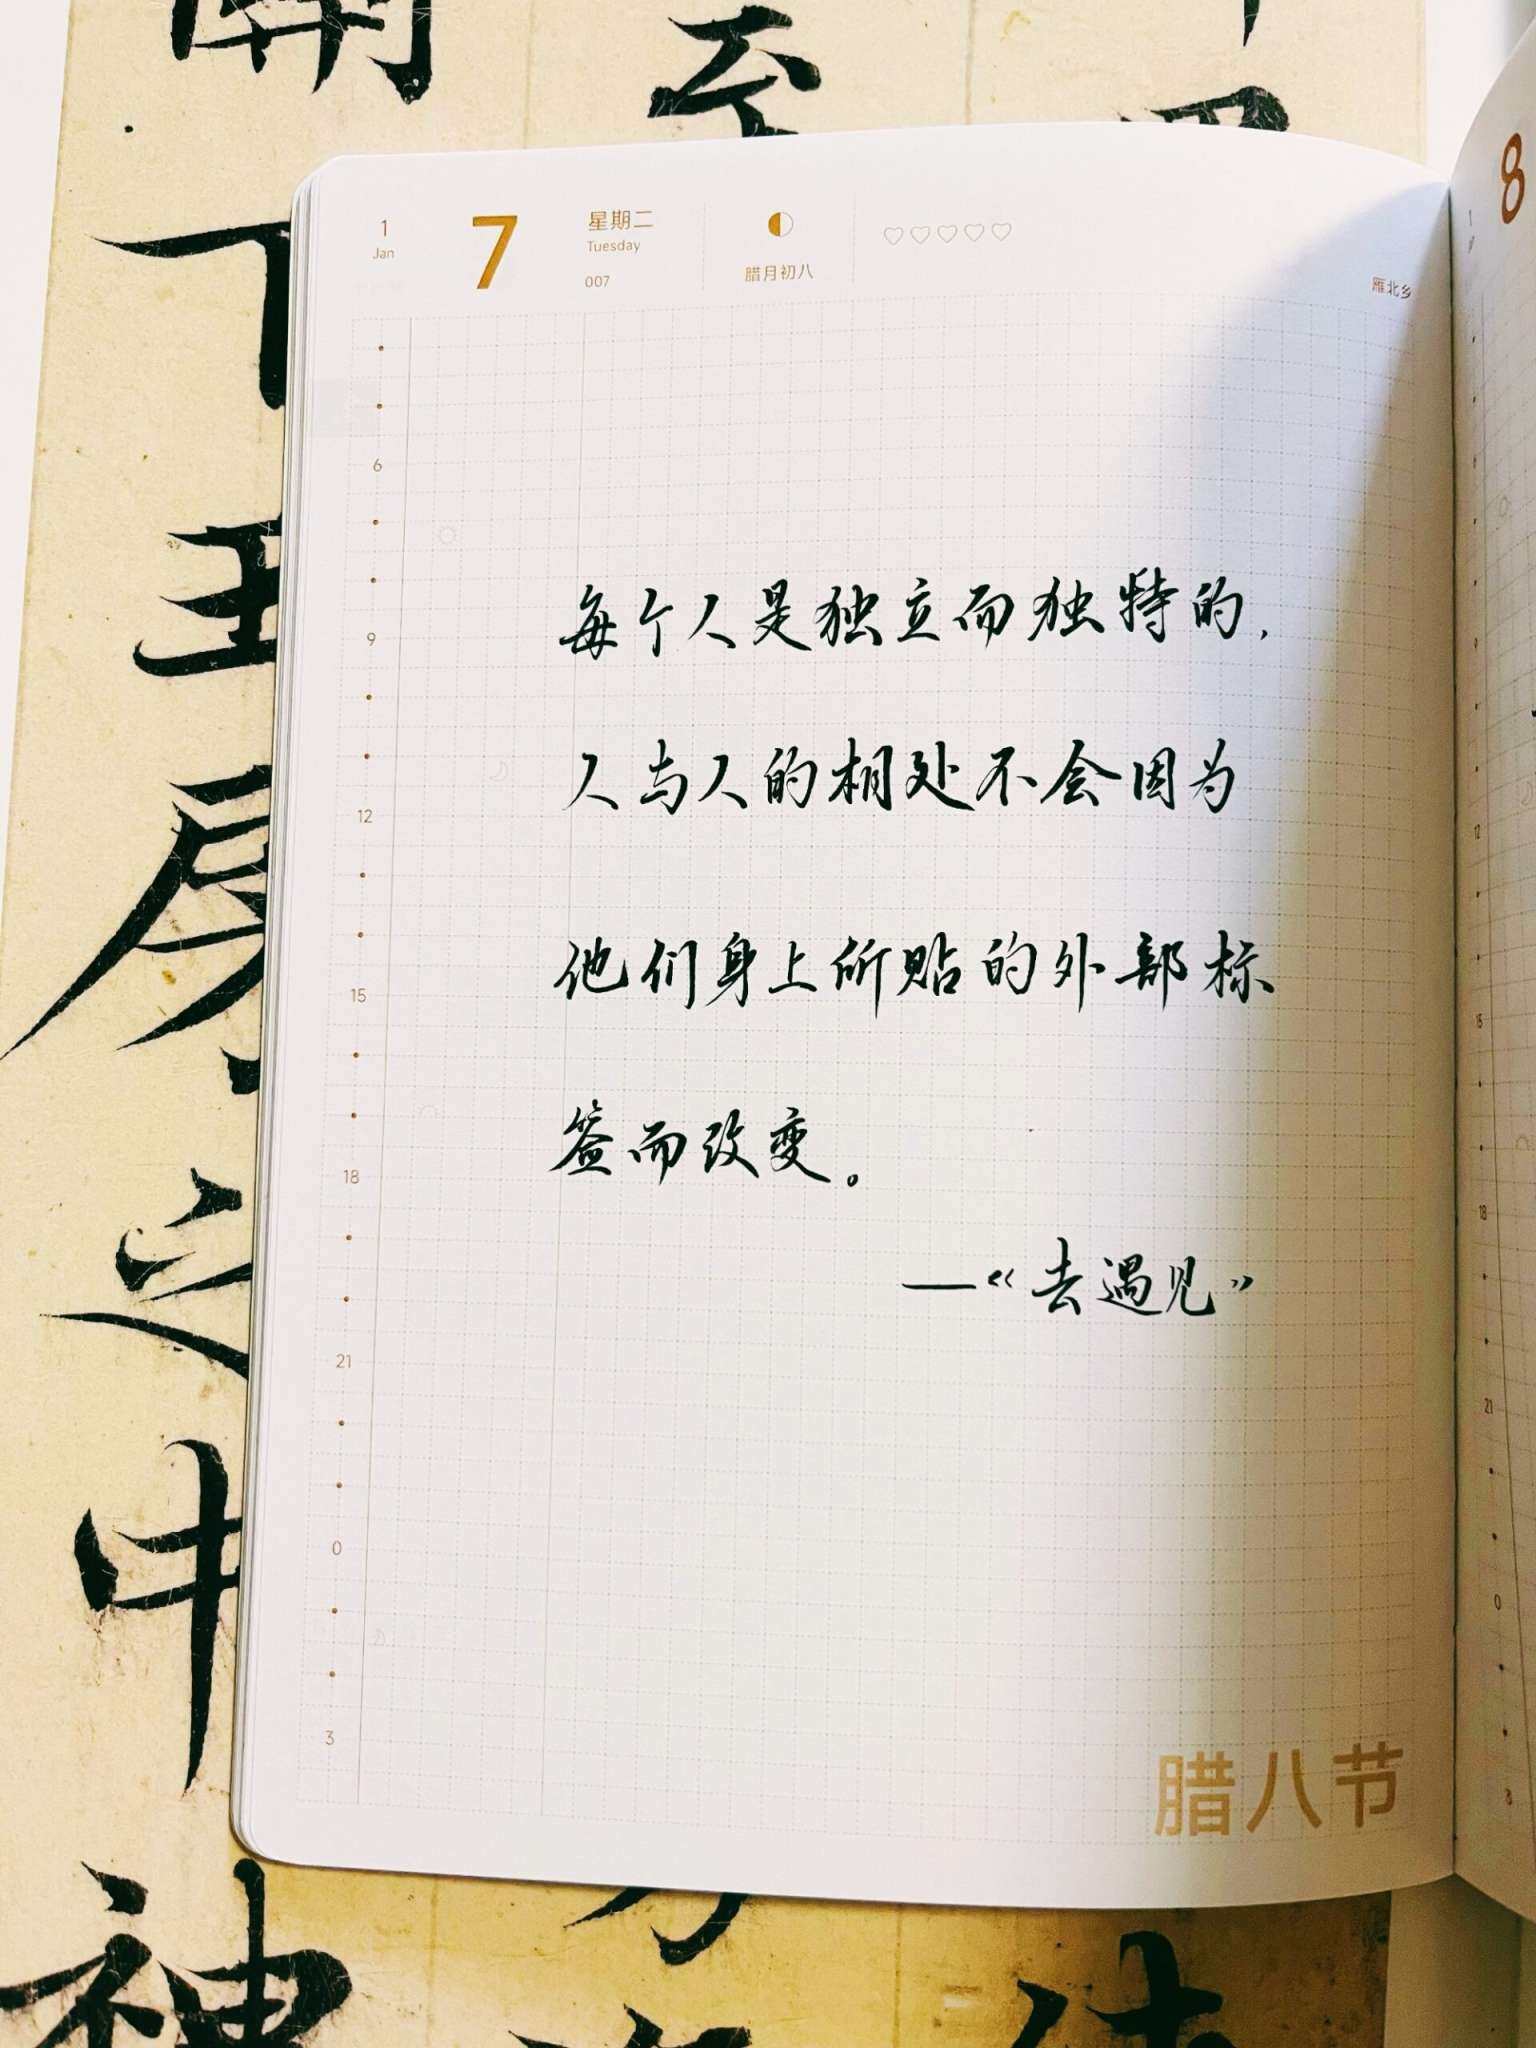 1
Jan
7
星期二
Tuesday
007
腊月初八
雁北乡
8
6
9
12
15
18
21
0
3
每个人是独立而独特的,
人与人的相处不会因为
他们身上所贴的外部标
签而改变。
—《去遇见》
腊八节
12
15
18
21
0
至
下
五
之
中
神